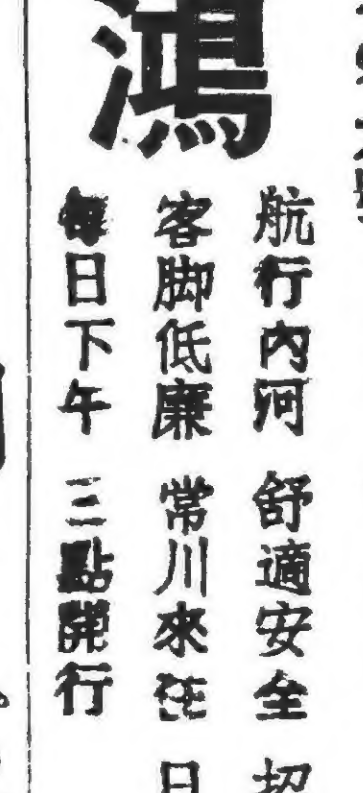 鴻
航行內河 舒適安全 招
客脚低廉 常川來往 日
每日下午 三點開行